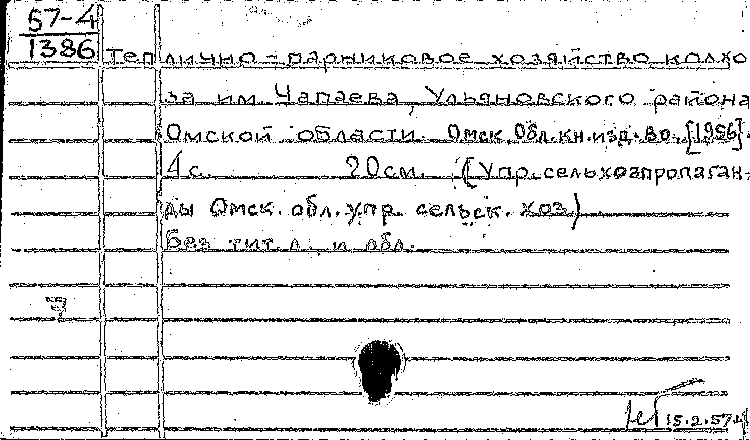 57-4
1386
Теплично-парниковое хозяйство колхо
за им. Чапаева, Ульяновского района
Омской области. Омск, Обл.кн.изд.во, [1956].
4 с. 20 см. (Упр. сельхозпропаган-
ды Омск. обл. упр. сельск. хоз)
Без тит. л. и обл.
15.2.57г